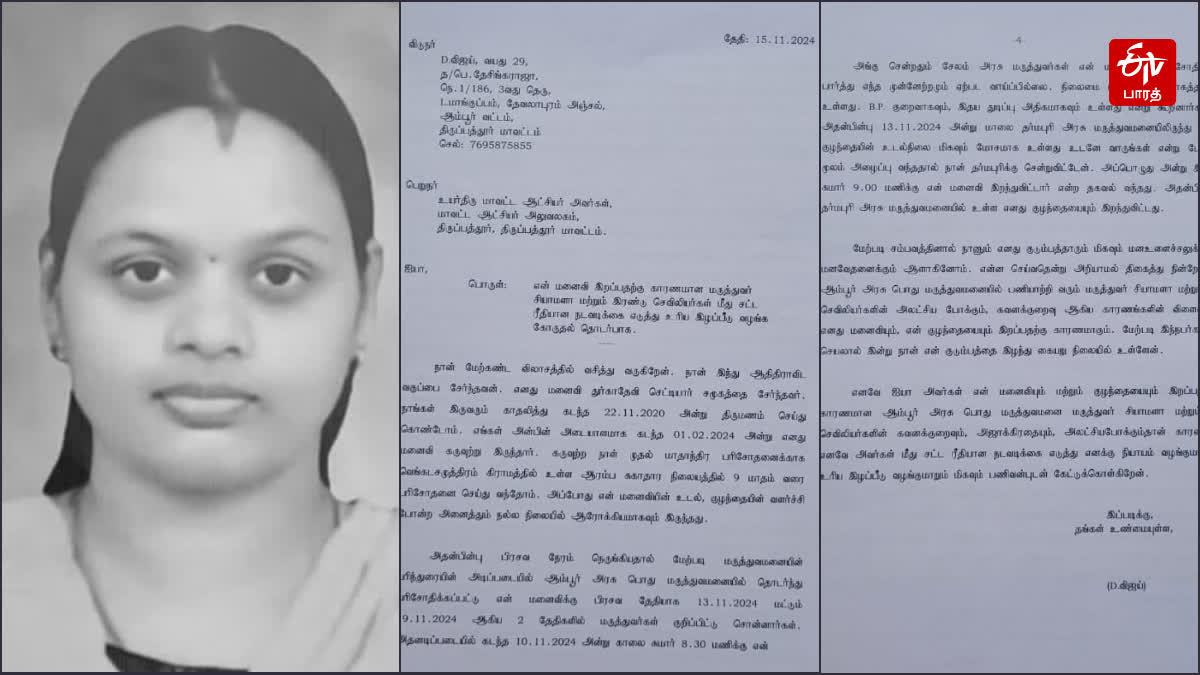 தேதி: 15.11.2024
விடுநர்
D.விஜய், வயது 29,
த/பெ.தேசிங்கராஜா,
நெ.1/186, 3வது தெரு,
L.மாங்குப்பம், தேவலாபுரம் அஞ்சல்,
ஆம்பூர் வட்டம்,
திருப்பத்தூர் மாவட்டம்
செல்: 7695875855
பெறுநர்
உயர்திரு மாவட்ட ஆட்சியர் அவர்கள்,
மாவட்ட ஆட்சியர் அலுவலகம்,
திருப்பத்தூர், திருப்பத்தூர் மாவட்டம்.
ஐயா,
பொருள்: என் மனைவி இறப்பதற்கு காரணமான மருத்துவர்
சியாமளா மற்றும் இரண்டு செவிலியர்கள் மீது சட்ட
ரீதியான நடவடிக்கை எடுத்து உரிய இழப்பீடு வழங்க
கோருதல் தொடர்பாக.
நான் மேற்கண்ட விலாசத்தில் வசித்து வருகிறேன். நான் இந்து ஆதிதிராவிட
வகுப்பை சேர்ந்தவன். எனது மனைவி துர்காதேவி செட்டியார் சமூகத்தை சேர்ந்தவர்.
நாங்கள் இருவரும் காதலித்து கடந்த 22.11.2020 அன்று திருமணம் செய்து
கொண்டோம். எங்கள் அன்பின் அடையாளமாக கடந்த 01.02.2024 அன்று எனது
மனைவி கருவுற்று இருந்தார். கருவுற்ற நாள் முதல் மாதாந்திர பரிசோதனைக்காக
வெங்கடசமுத்திரம் கிராமத்தில் உள்ள ஆரம்ப சுகாதார நிலையத்தில் 9 மாதம் வரை
பரிசோதனை செய்து வந்தோம். அப்போது என் மனைவியின் உடல், குழந்தையின் வளர்ச்சி
போன்ற அனைத்தும் நல்ல நிலையில் ஆரோக்கியமாகவும் இருந்தது.
அதன்பின்பு பிரசவ நேரம் நெருங்கியதால் மேற்படி மருத்துவமனையின்
ரிந்துரையின் அடிப்படையில் ஆம்பூர் அரசு பொது மருத்துவமனையில் தொடர்ந்து
பரிசோதிக்கப்பட்டு என் மனைவிக்கு பிரசவ தேதியாக 13.11.2024 மட்டும்
9.11.2024 ஆகிய 2 தேதிகளில் மருத்துவர்கள் குறிப்பிட்டு சொன்னார்கள்.
அதனடிப்படையில் கடந்த 10.11.2024 அன்று காலை சுமார் 8.30 மணிக்கு என்
-4-
அங்கு சென்றதும் சேலம் அரசு மருத்துவர்கள் என்
பார்த்து எந்த முன்னேற்றமும் ஏற்பட வாய்ப்பில்லை. நிலைமை
உள்ளது. B.P. குறைவாகவும், இதய துடிப்பு அதிகமாகவும் உள்ளது என்று
அதன்பின்பு 13.11.2024 அன்று மாலை தர்மபுரி அரசு மருத்துவமனையிலிருந்து
குழந்தையின் உடல்நிலை மிகவும் மோசமாக உள்ளது உடனே வாருங்கள் என்று
மூலம் அழைப்பு வந்ததால் நான் தர்மபுரிக்கு சென்றுவிட்டேன். அப்பொழுது அன்று
சுமார் 9.00 மணிக்கு என் மனைவி இறந்துவிட்டார் என்ற தகவல் வந்தது.
தர்மபுரி அரசு மருத்துவமனையில் உள்ள எனது குழந்தையையும் இறந்துவிட்டது.
மேற்படி சம்பவத்தினால் நானும் எனது குடும்பத்தாரும் மிகவும் மனஉளைச்சலுக்
மனவேதனைக்கும் ஆளாகினோம். என்ன செய்வதென்று அறியாமல் திகைத்து நின்றே
ஆம்பூர் அரசு பொது மருத்துவமனையில் பணியாற்றி வரும் மருத்துவர் சியாமளா
செவிலியர்களின் அலட்சிய போக்கும், கவனக்குறைவு ஆகிய காரணங்களின்
எனது மனைவியும், என் குழந்தையையும் இறப்பதற்கு காரணமாகும். மேற்படி
செயலால் இன்று நான் என் குடும்பத்தை இழந்து கையறு நிலையில் உள்ளேன்.
எனவே ஐயா அவர்கள் என் மனைவியும் மற்றும் குழந்தையையும் இறப்ப
காரணமான ஆம்பூர் அரசு பொது மருத்துவமனை மருத்துவர் சியாமளா
செவிலியர்களின் கவனக்குறைவும், அஜாக்கிரதையும், அலட்சியபோக்கும்தான்
எனவே அவர்கள் மீது சட்ட ரீதியான நடவடிக்கை எடுத்து எனக்கு நியாயம் வழங்கும
உரிய இழப்பீடு வழங்குமாறும் மிகவும் பணிவன்புடன் கேட்டுக்கொள்கிறேன்.
இப்படிக்கு,
தங்கள் உண்மையுள்ள,
(D.விஜய்)
பாரத்